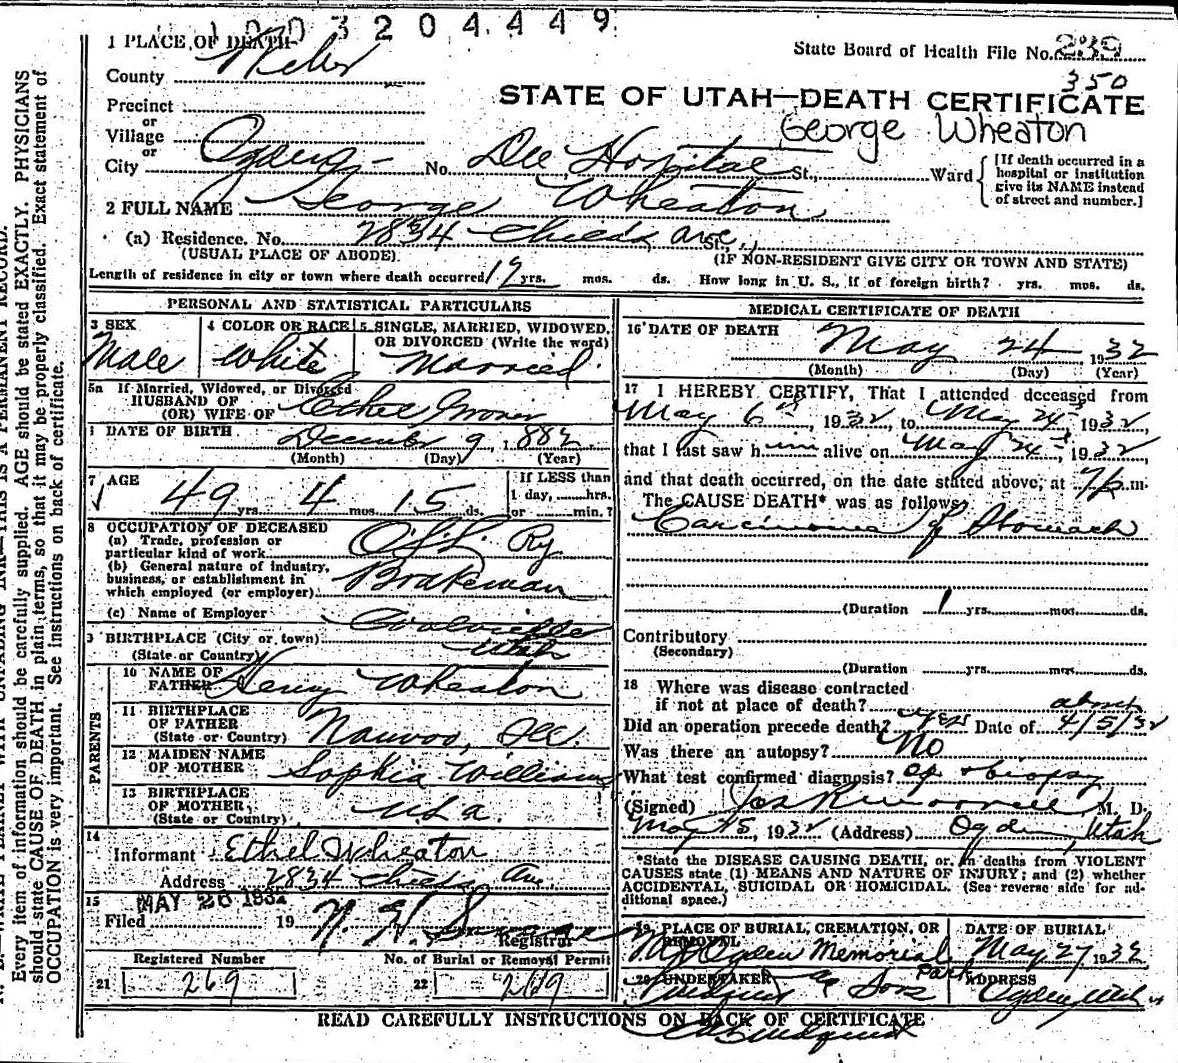 1003204449
1 PLACE OF DEATH
State Board of Health File No. 239
County Weber
350
Precinct
STATE OF UTAH—DEATH CERTIFICATE
or
Village
George Wheaton
or
City Ogden No. Dee Hospital St., Ward
[If death occurred in a
hospital or institution
give its NAME instead
of street and number.]
2 FULL NAME George Wheaton
(a) Residence. No. 2834 Childs Ave. St.,
(USUAL PLACE OF ABODE) (IF NON-RESIDENT GIVE CITY OR TOWN AND STATE)
Length of residence in city or town where death occurred 19 yrs. mos. ds. How long in U. S., if of foreign birth? yrs. mos. ds.
PERSONAL AND STATISTICAL PARTICULARS
3 SEX
Male
4 COLOR OR RACE
White
5 SINGLE, MARRIED, WIDOWED,
OR DIVORCED (Write the word)
Married
5a If Married, Widowed, or Divorced
HUSBAND OF
(OR) WIFE OF Ethel
DATE OF BIRTH December 9, 1882
(Month) (Day) (Year)
7 AGE
49 yrs. 4 mos. 15 ds.
If LESS than
1 day, hrs.
or min.?
8 OCCUPATION OF DECEASED
(a) Trade, profession or
particular kind of work O.S.L. Ry.
(b) General nature of industry,
business, or establishment in
which employed (or employer) Brakeman
(c) Name of Employer
9 BIRTHPLACE (City or town) Coalville
(State or Country) Utah
PARENTS
10 NAME OF
FATHER Henry Wheaton
11 BIRTHPLACE
OF FATHER
(State or Country) Nauvoo, Ill.
12 MAIDEN NAME
OF MOTHER Sophia Williams
13 BIRTHPLACE
OF MOTHER
(State or Country) USA.
14
Informant Ethel Wheaton
Address 2834 Childs Ave.
15
Filed MAY 26 1932 19 N. H. Savage
Registrar
Registered Number No. of Burial or Removal Permit
21 269 22 269
MEDICAL CERTIFICATE OF DEATH
16 DATE OF DEATH
May 24 1932
(Month) (Day) (Year)
17 I HEREBY CERTIFY, That I attended deceased from
May 6th, 1932, to May 24, 1932,
that I last saw him alive on May 24, 1932
and that death occurred, on the date stated above, at 7 p m.
The CAUSE DEATH* was as follows
Carcinoma of Stomach
(Duration 1 yrs. mos. ds.
Contributory
(Secondary)
(Duration yrs. mos. ds.
18 Where was disease contracted
if not at place of death?
about
Did an operation precede death? yes Date of 4/5/32
Was there an autopsy? No
What test confirmed diagnosis? op & biopsy
(Signed) M. D.
May 25, 1932 (Address) Ogden, Utah
*State the DISEASE CAUSING DEATH, or, in deaths from VIOLENT
CAUSES state (1) MEANS AND NATURE OF INJURY; and (2) whether
ACCIDENTAL, SUICIDAL OR HOMICIDAL. (See reverse side for ad-
ditional space.)
19 PLACE OF BURIAL, CREMATION, OR
REMOVAL
Ogden Memorial
Park
DATE OF BURIAL
May 27 1932
20 UNDERTAKER
Lindquist & Sons
ADDRESS
Ogden, Utah
READ CAREFULLY INSTRUCTIONS ON BACK OF CERTIFICATE
Every item of information should be carefully supplied. AGE should be stated EXACTLY. PHYSICIANS
should state CAUSE OF DEATH in plain terms, so that it may be properly classified. Exact statement of
OCCUPATION is very important. See instructions on back of certificate.